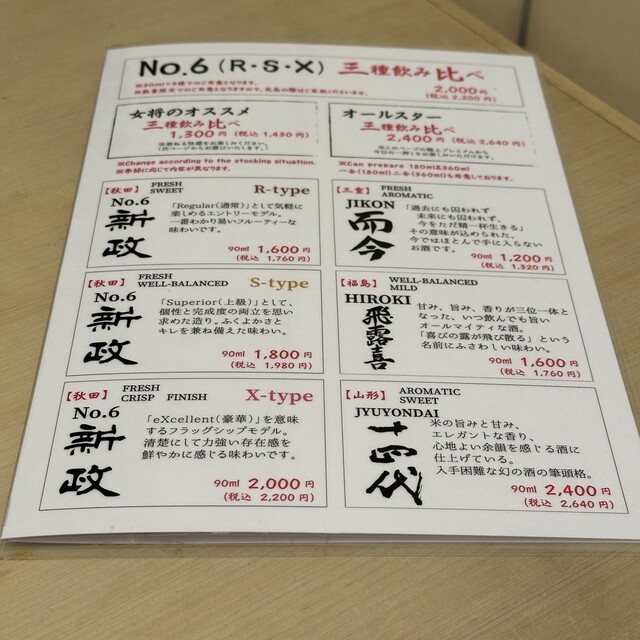 No.6 (R・S・X) 三種飲み比べ
※30ml×3種でのご用意となります。
※数量限定でのご用意となりますので、欠品の際はご容赦くださいませ。
2,000円
(税込 2,200円)
女将のオススメ
三種飲み比べ
1,300円 (税込 1,430円)
※Change according to the stocking situation.
※季節に応じて内容が異なります。
オールスター
三種飲み比べ
2,400円 (税込 2,640円)
※Can prepare 180ml&360ml
一合(180ml)二合(360ml)も用意しております。
【秋田】 FRESH
SWEET
R-type
No.6
新政
「Regular(通常)」として気軽に
楽しめるエントリーモデル。
一番わかり易いフルーティーな
味わいです。
90ml 1,600円
(税込 1,760円)
【三重】 FRESH
AROMATIC
JIKON
而今
「過去にも囚われず
未来にも囚われず、
今をただ精一杯生きる」
その意味が込められた、
今ではほとんど手に入らない
お酒です。
90ml 1,200円
(税込 1,320円)
【秋田】 FRESH
WELL-BALANCED
S-type
No.6
新政
「Superior(上級)」として、
個性と完成度の両立を思い
求めた造り。ふくよかさと
キレを兼ね備えた味わい。
90ml 1,800円
(税込 1,980円)
【福島】 WELL-BALANCED
MILD
HIROKI
飛露喜
甘み、旨み、香りが三位一体と
なった、いつ飲んでも旨い
オールマイティな酒。
「喜びの露が飛び散る」という
名前にふさわしい味わい。
90ml 1,600円
(税込 1,760円)
【秋田】 FRESH
CRISP FINISH
X-type
No.6
新政
「eXcellent(豪華)」を意味
するフラッグシップモデル。
清楚にして力強い存在感を
鮮やかに感じる味わいです。
90ml 2,000円
(税込 2,200円)
【山形】 AROMATIC
SWEET
JYUYONDAI
十四代
米の旨みと甘み、
エレガントな香り、
心地よい余韻を感じる酒に
仕上げている。
入手困難な幻の酒の筆頭格。
90ml 2,400円
(税込 2,640円)